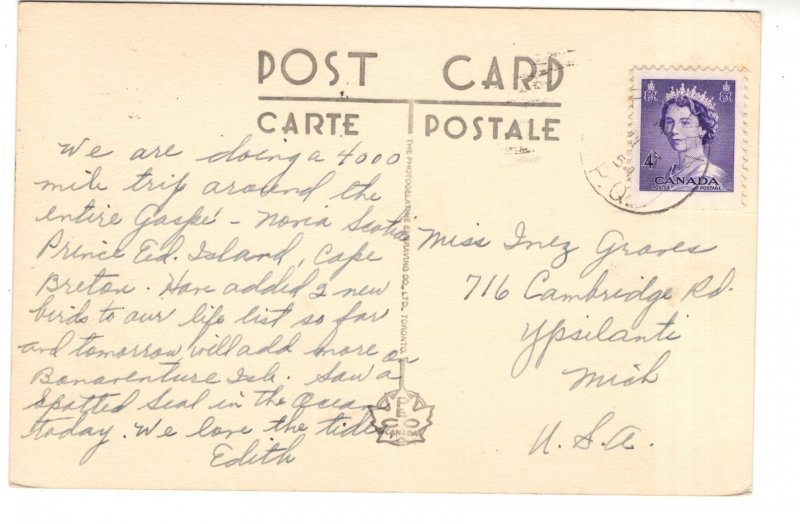 POST CARD
CARTE POSTALE
We are doing a 4000
mile trip around the
entire Gaspé - Nova Scotia
Prince Ed. Island, Cape
Breton. Have added 2 new
birds to our life list so far
and tomorrow will add more on
Bonaventure Isl. Saw a
Spotted Seal in the Ocean
today. We love the tides,
Edith
THE PHOTOGELATINE ENGRAVING CO., LTD., TORONTO
PECO
CANADA
4
CANADA
POSTES POSTAGE
P.Q.
Miss Inez Graves
716 Cambridge Rd.
Ypsilanti
Mich
U.S.A.